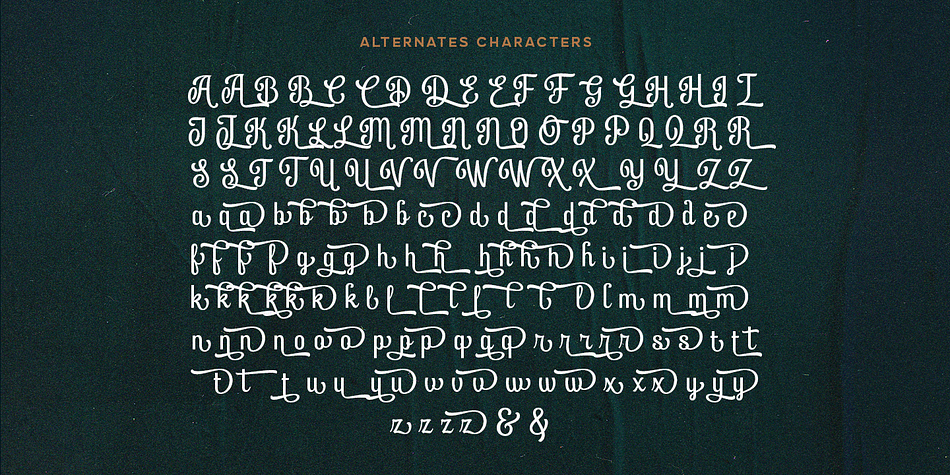 ALTERNATES CHARACTERS
A A B B C C D D E E F F G G H H I I
J J K K L L M M N N O O P P Q Q R R
S S T T U U V V W W X X Y Y Z Z
a a a b b b b b c c d d d d d d d e e
f f f f g g g h h h h h h h i i i j j j
k k k k k k k l l l l l l l l l m m m m
n n n n o o o p p p p q q q r r r r r s s t t t
t t t u u u u v v v w w w x x x y y y
z z z z & &